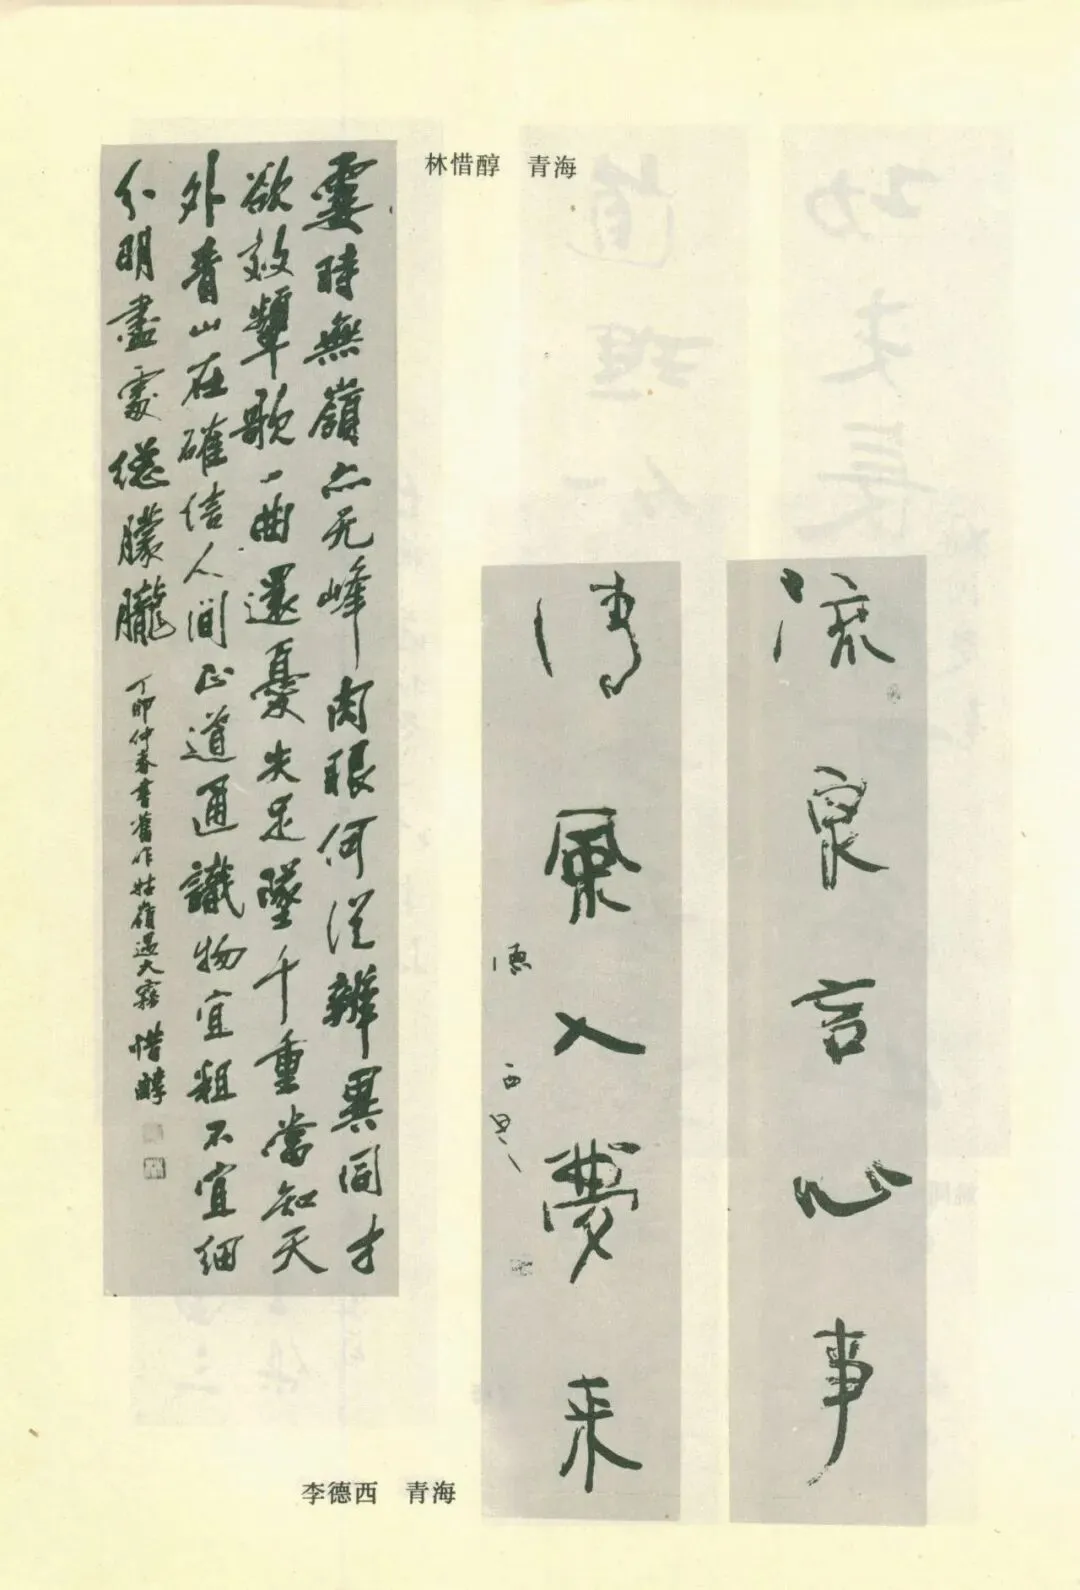 林惜醇 青海
霎時無嶺亦无峰肉眼何從辨異同才
欲效顰歌一曲還憂失足墜千重當知天
外青山在確信人間正道通識物宜粗不宜細
分明盡處總朦朧
丁卯仲春書舊作牯嶺遇大霧 惜醇
流泉言心事
清風入夢来
德西
李德西 青海